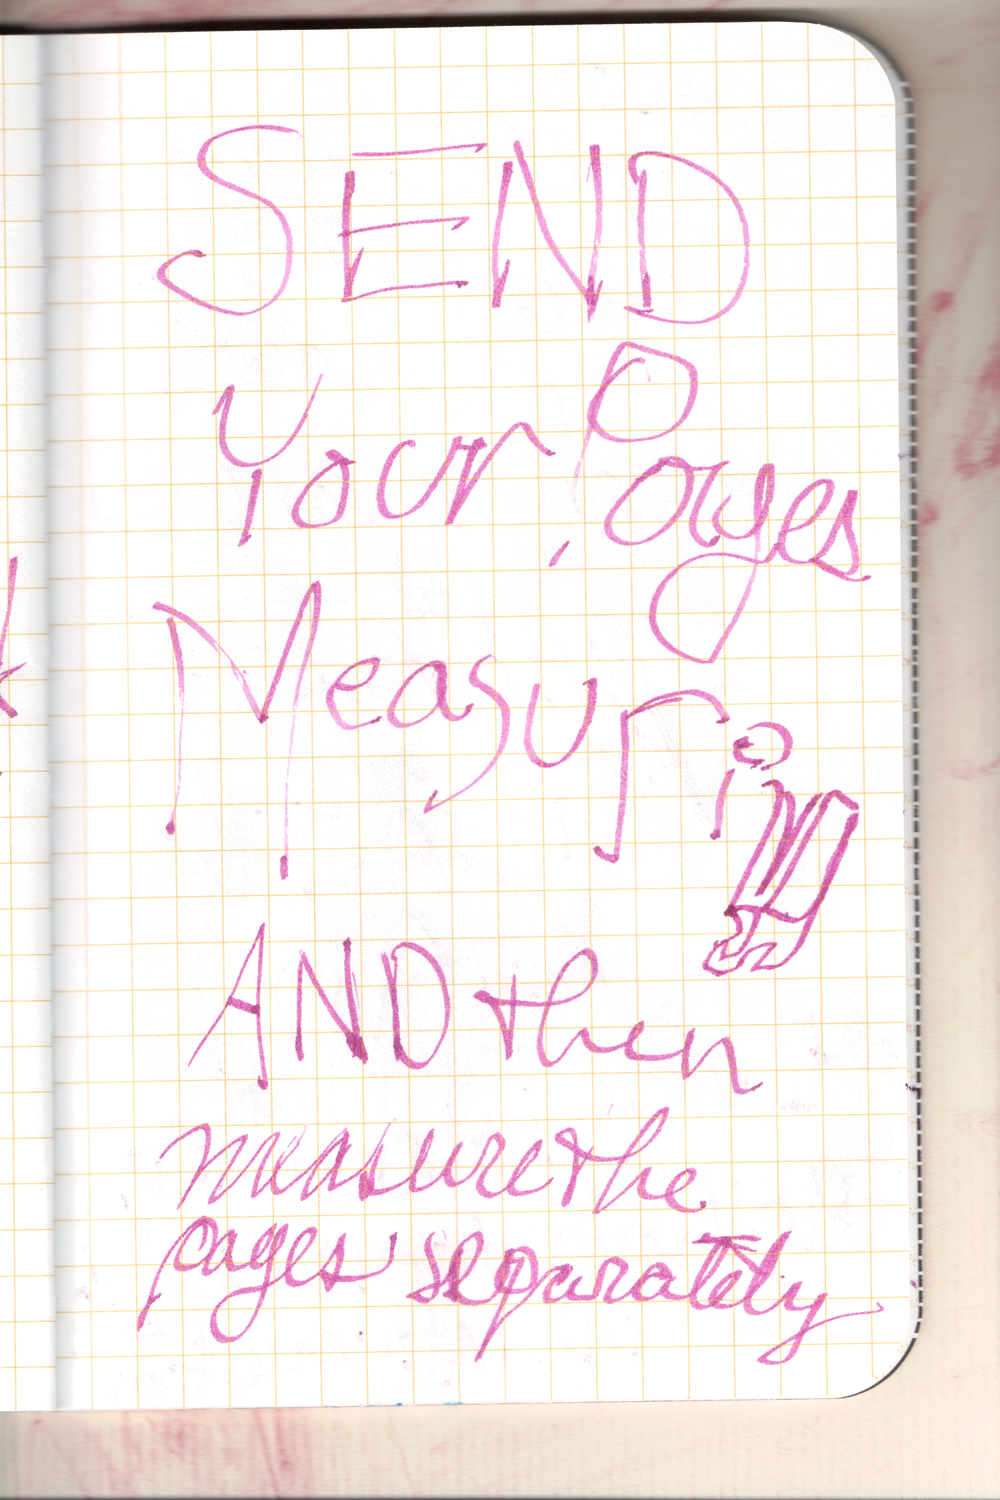 SEND
Your Pages
Measuring
AND then
measure the
pages separately